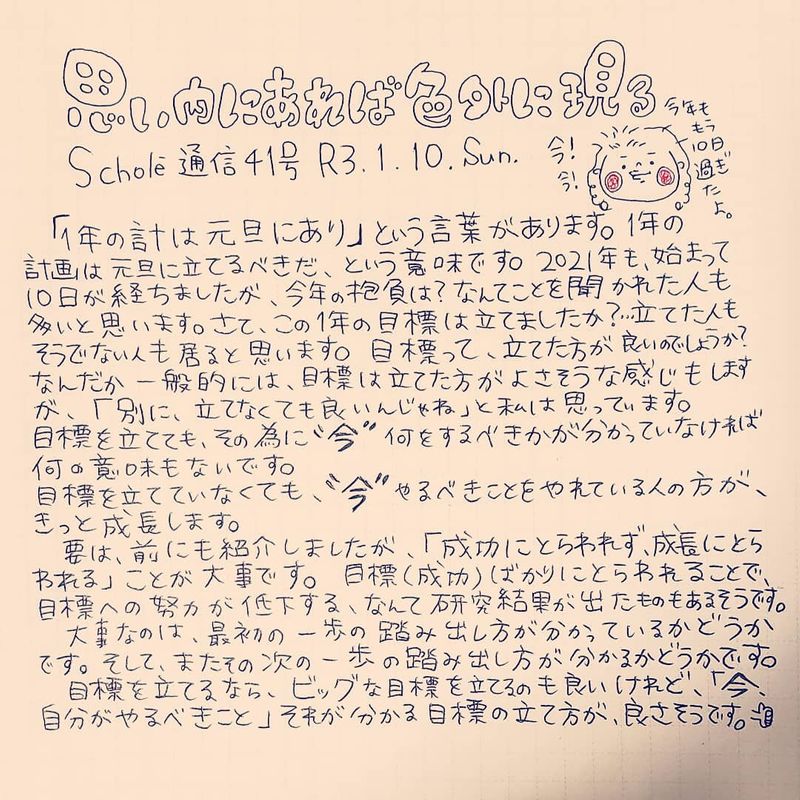 思い内にあれば色外に現る
Scholē 通信41号 R3.1.10.Sun.
今!
今!
今年も
もう
10日
過ぎ
たよ。
「1年の計は元旦にあり」という言葉があります。1年の
計画は元旦に立てるべきだ、という意味です。2021年も、始まって
10日が経ちましたが、今年の抱負は?なんてことを聞かれた人も
多いと思います。さて、この1年の目標は立てましたか?…立てた人も
そうでない人も居ると思います。目標って、立てた方が良いのでしょうか?
なんだか一般的には、目標は立てた方がよさそうな感じもします
が、「別に、立てなくても良いんじゃね」と私は思っています。
目標を立てても、その為に"今"何をするべきかが分かっていなければ
何の意味もないです。
目標を立てていなくても、"今"やるべきことをやれている人の方が、
きっと成長します。
要は、前にも紹介しましたが、「成功にとらわれず、成長にとら
われる」ことが大事です。目標(成功)ばかりにとらわれることで、
目標への努力が低下する、なんて研究結果が出たものもあるそうです。
大事なのは、最初の一歩の踏み出し方が分かっているかどうか
です。そして、またその次の一歩の踏み出し方が分かるかどうかです。
目標を立てるなら、ビッグな目標を立てるのも良いけれど、「今、
自分がやるべきこと」それが分かる目標の立て方が、良さそうです。